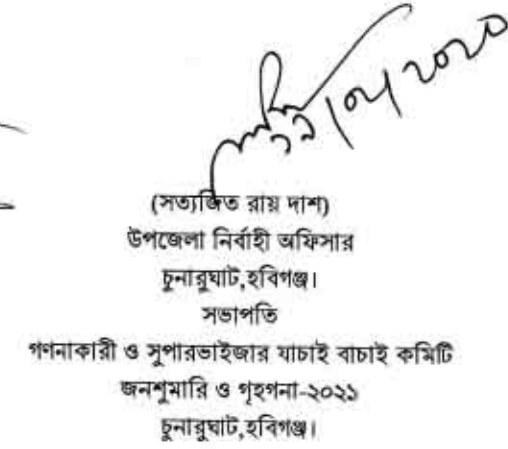 (সত্যজিত রায় দাশ)
উপজেলা নির্বাহী অফিসার
চুনারুঘাট,হবিগঞ্জ।
সভাপতি
গণনাকারী ও সুপারভাইজার যাচাই বাচাই কমিটি
জনশুমারি ও গৃহগনা-২০২১
চুনারুঘাট,হবিগঞ্জ।